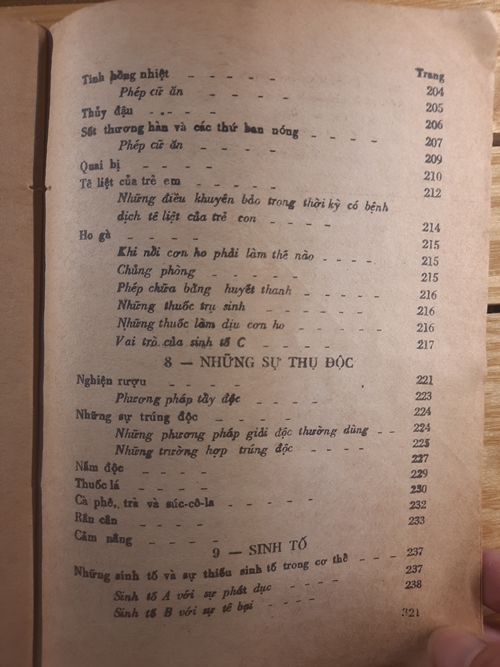 Trang
Tinh hồng nhiệt - - - - - 204
Phép cữ ăn - - - - 205
Thủy đậu - - - - - 206
Sốt thương hàn và các thứ ban nóng - - - - 207
Phép cữ ăn - - - - 209
Quai bị - - - - 210
Tê liệt của trẻ em - - - - - 212
Những điều khuyên bảo trong thời kỳ có bệnh
dịch tê liệt của trẻ con - - - - 214
Ho gà - - - - 215
Khi nổi cơn ho phải làm thế nào - - - - 215
Chủng phòng - - - - - 215
Phép chữa bằng huyết thanh - - - - 216
Những thuốc trụ sinh - - - - 216
Những thuốc làm dịu cơn ho - - - - 216
Vai trò của sinh tố C - - - - 217
8 — NHỮNG SỰ THỤ ĐỘC
Nghiện rượu - - - - 221
Phương pháp tẩy độc - - - - 223
Những sự trúng độc - - - - 224
Những phương pháp giải độc thường dùng - - 224
Những trường hợp trúng độc - - - - 225
Nấm độc - - - - 227
Thuốc lá - - - - 229
Cà phê, trà và súc-cô-la - - - - 230
Rắn cắn - - - - 232
Cảm nắng - - - - 233
9 — SINH TỐ
Những sinh tố và sự thiếu sinh tố trong cơ thể - - - 237
Sinh tố A với sự phát dục - - - - 237
Sinh tố B với sự tê bại - - - - 238
321